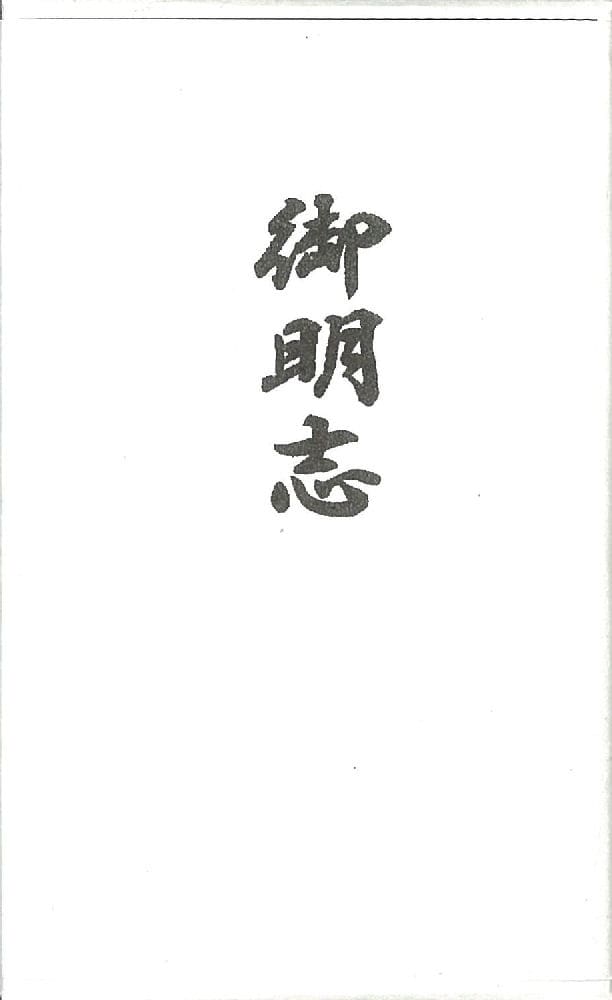 御明志